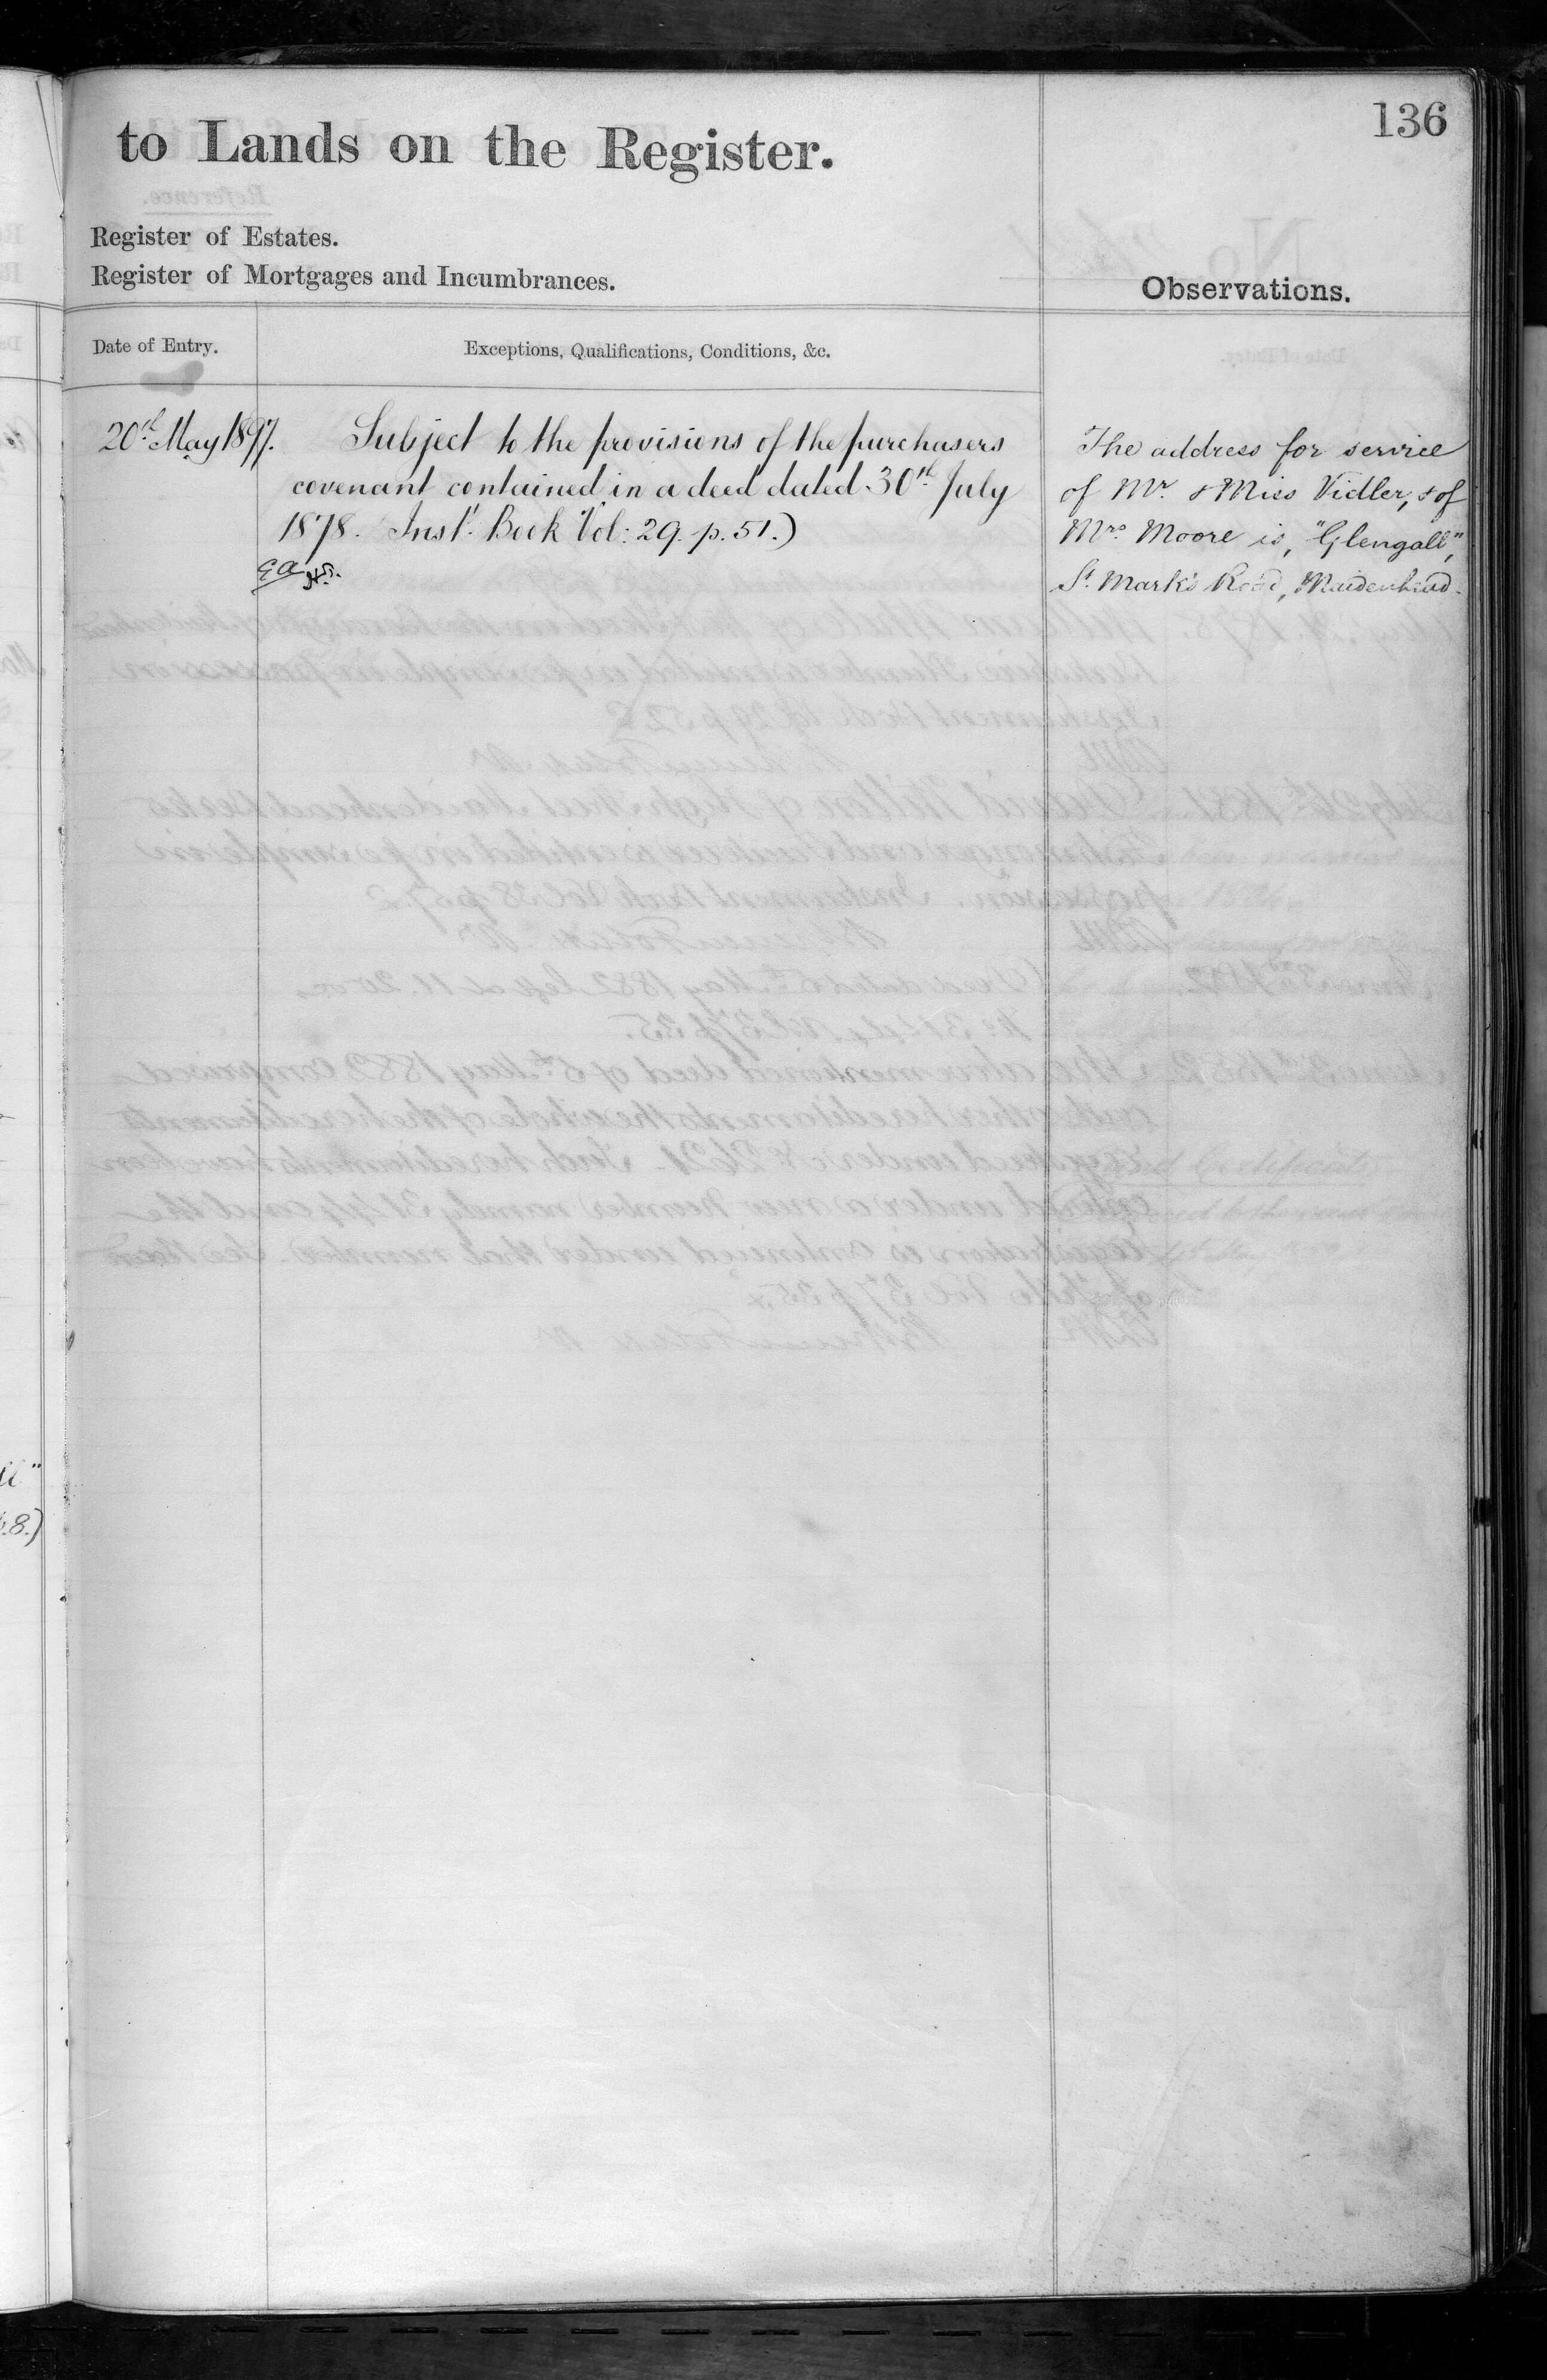 136
to Lands on the Register.
Register of Estates.
Register of Mortgages and Incumbrances.
Observations.
Date of Entry.
Exceptions, Qualifications, Conditions, &c.
20th May 1897.
Subject to the provisions of the purchasers
covenant contained in a deed dated 30th July
1878. Inst. Book Vol: 29. p. 51.)
The address for service
of Mr. & Miss Vidler, & of
Mrs. Moore is, "Glengall",
St. Mark's Road, Maidenhead.